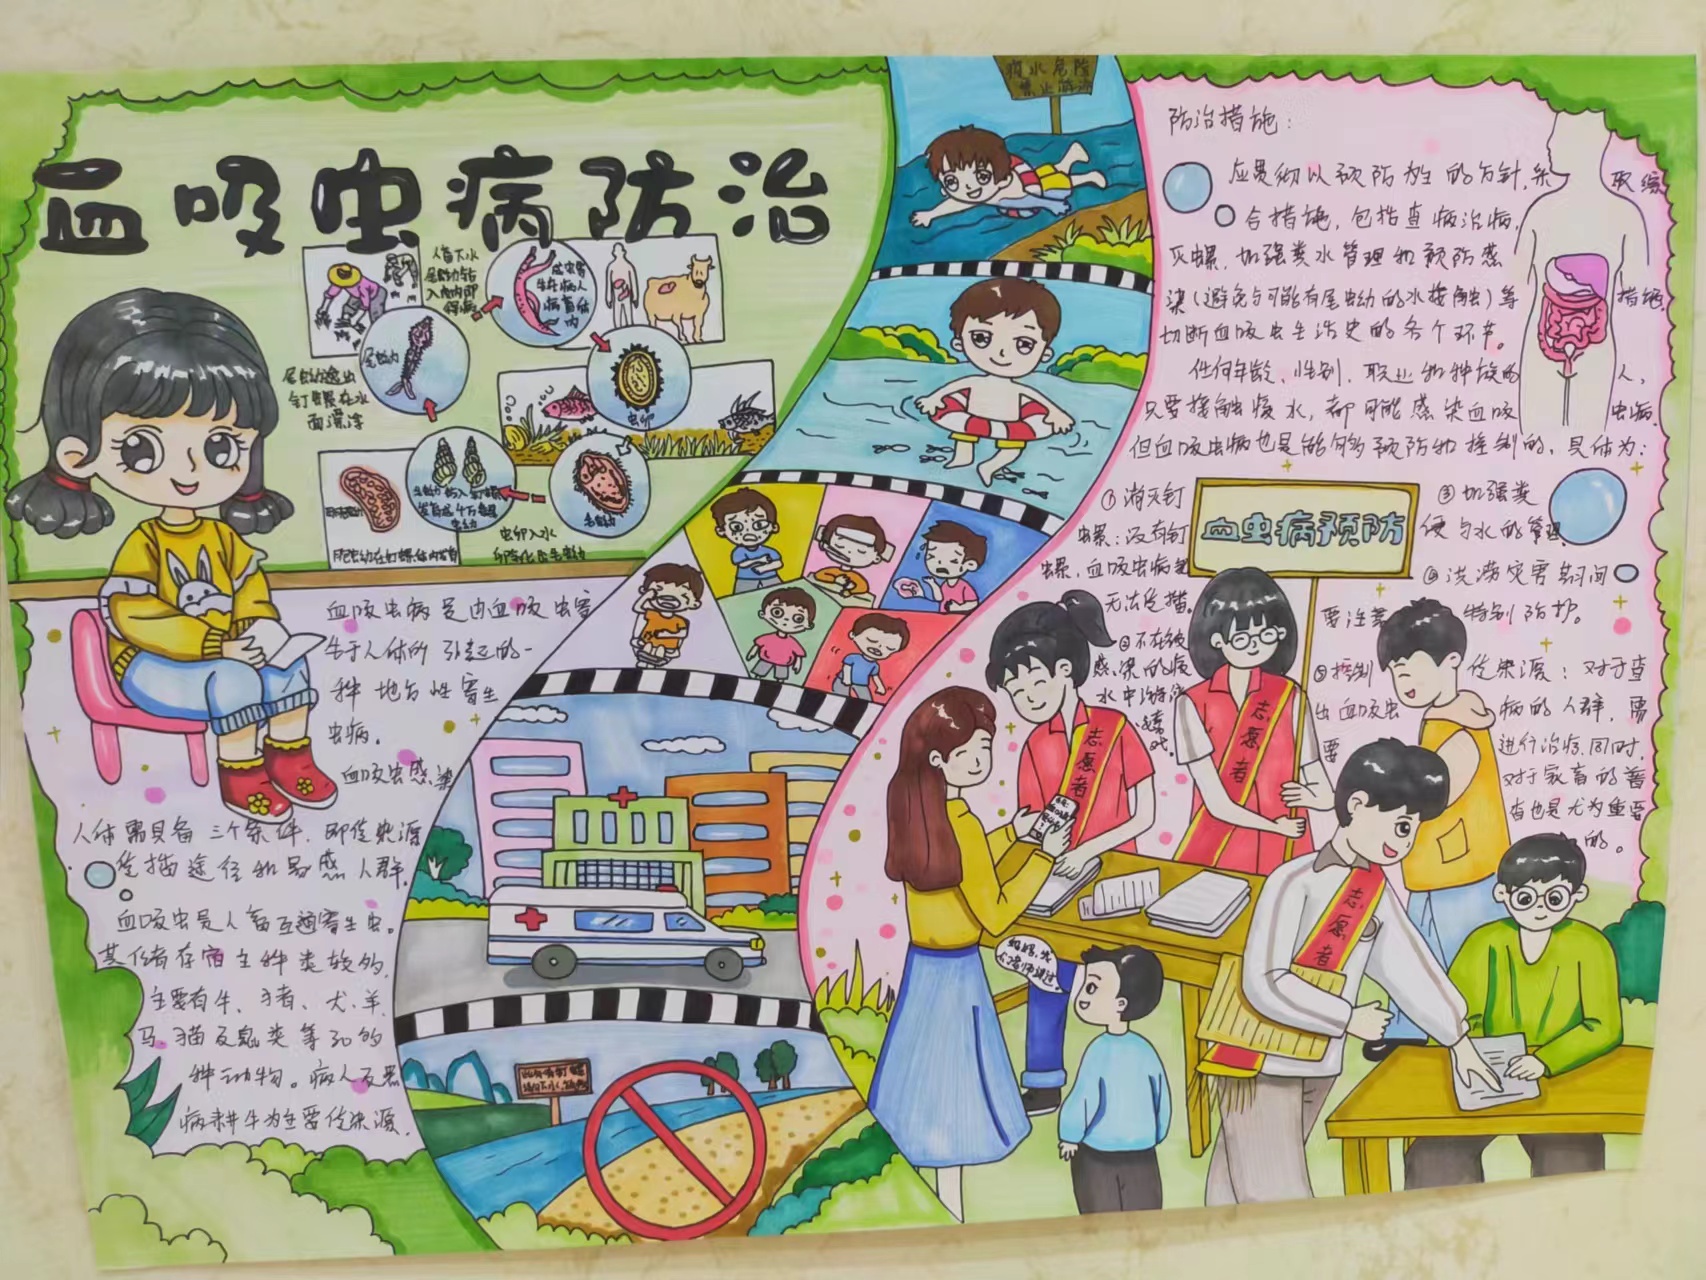 血吸虫病防治
人畜下水
尾蚴钻
入皮肤即
得病
成虫寄
生在病人
病畜体
内
尾蚴
尾蚴逸出
钉螺在水
面漂浮
虫卵
毛蚴
虫卵入水
卵孵化出毛蚴
血吸虫病是由血吸虫寄
生于人体所引起的一
种地方性寄生
虫病。
血吸虫感染
人体需具备三个条件，即传染源
传播途径和易感人群。
血吸虫是人畜互通寄生虫。
其储存宿主种类较多，
主要有牛、猪、犬、羊、
马、猫及鼠类等30多
种动物。病人及患
病耕牛为主要传染源。
疫水危险
禁止游泳
防治措施：
应贯彻以预防为主的方针，采取综
合措施，包括查病治病，
灭螺，加强粪水管理和预防感
染（避免与可能有尾蚴的水接触）等措施，
切断血吸虫生活史的各个环节。
任何年龄、性别、职业和种族的人，
只要接触疫水，都可能感染血吸虫病，
但血吸虫病也是能够预防和控制的，具体为：
①消灭钉
螺：没有钉
螺，血吸虫病就
无法传播。
②不在被
感染的疫
水中游泳
嬉戏。
③加强粪
便与水的管理
④洪涝灾害期间
要注意特别防护。
⑤控制传染源：对于查
出血吸虫病的人群，需
要进行治疗，同时，
对于家畜的普
查也是尤为重要
的。
血虫病预防
志愿者
志愿者
志愿者